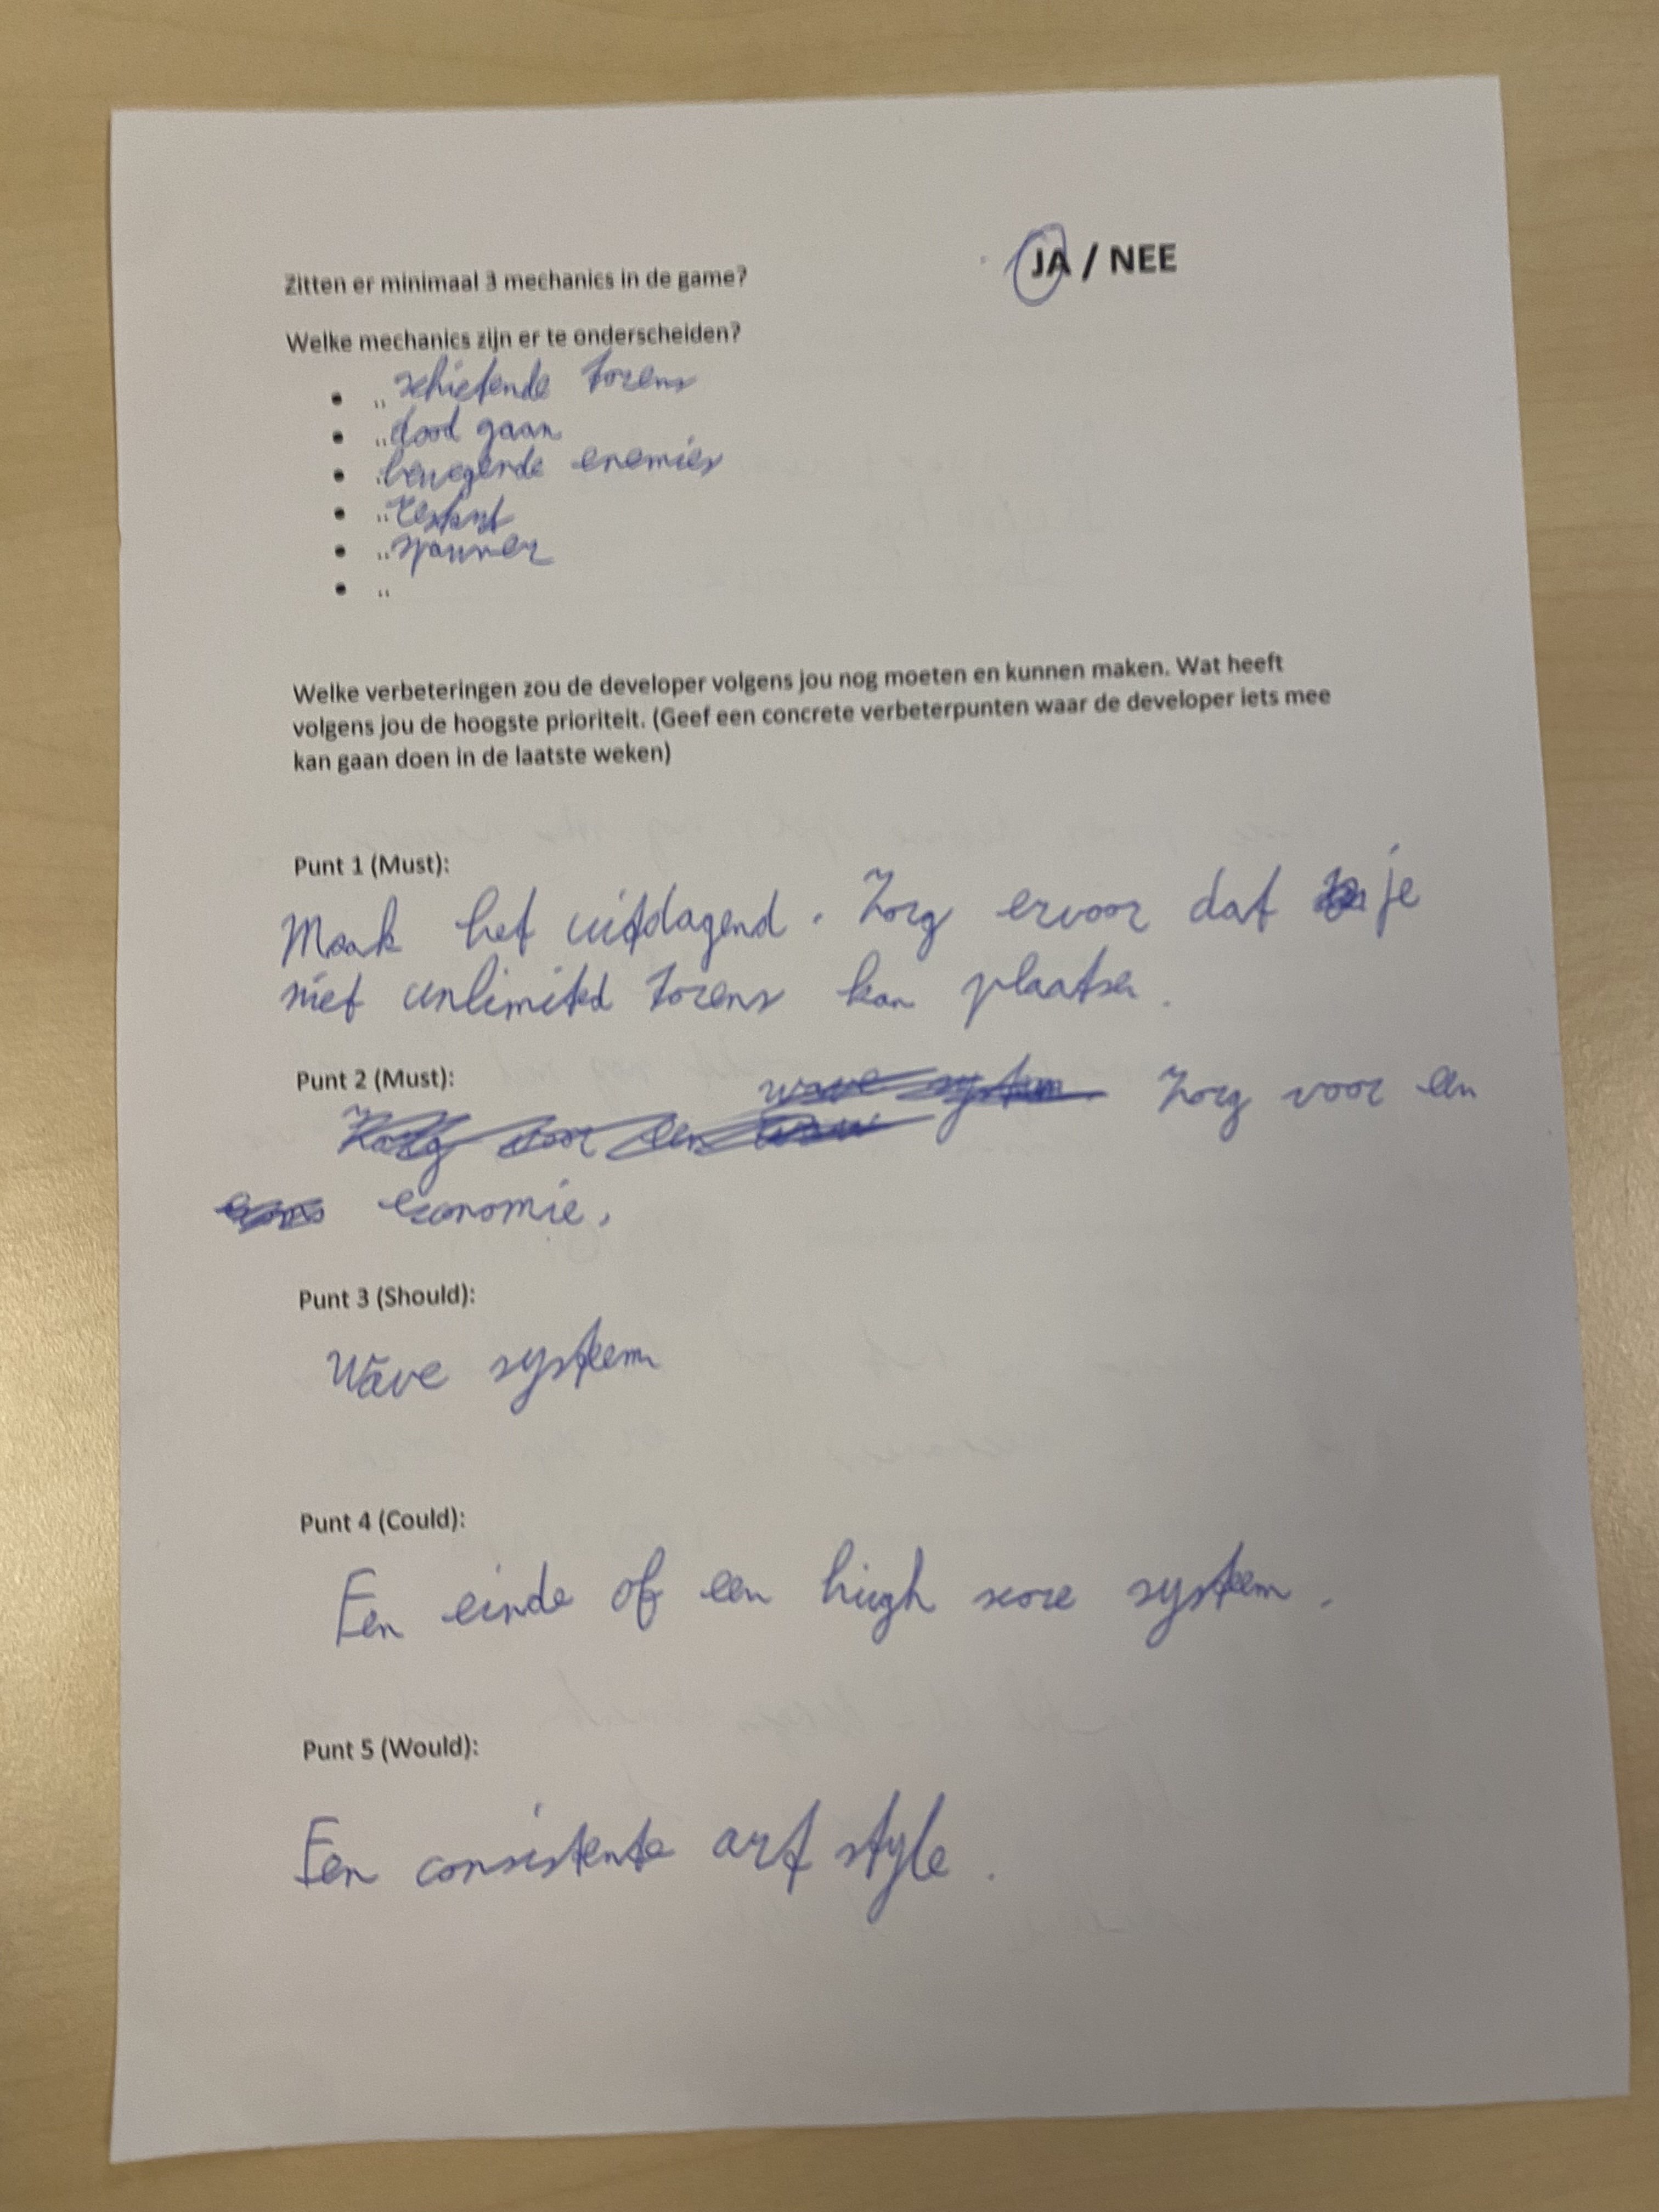 Zitten er minimaal 3 mechanics in de game? JA / NEE
Welke mechanics zijn er te onderscheiden?
• .. schietende torens
• .. dood gaan
• .. bewegende enemies
• .. restart
• .. spawner
• ..
Welke verbeteringen zou de developer volgens jou nog moeten en kunnen maken. Wat heeft
volgens jou de hoogste prioriteit. (Geef een concrete verbeterpunten waar de developer iets mee
kan gaan doen in de laatste weken)
Punt 1 (Must):
Maak het uitdagend. Zorg ervoor dat je
niet unlimited torens kan plaatsen.
Punt 2 (Must): wave systeem. Zorg voor een
Zorg voor een
economie.
Punt 3 (Should):
Wave systeem
Punt 4 (Could):
Een einde of een high score systeem.
Punt 5 (Would):
Een consistente art style.